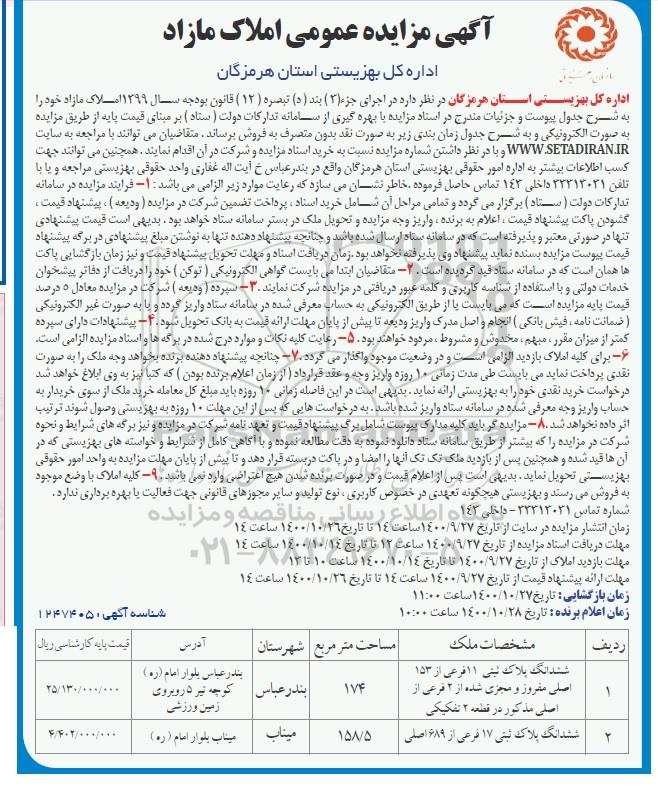 آگهی مزایده عمومی املاک مازاد
اداره کل بهزیستی استان هرمزگان
اداره کل بهزیستی استان هرمزگان در نظر دارد در اجرای جزء(۲) بند ( د) تبصره ( ۱۲ ) قانون بودجه سال ۱۳۹۹املاک مازاد خود را
به شرح جدول پیوست و جزئیات مندرج در اسناد مزایده با بهره گیری از سامانه تدارکات دولت ( ستاد ) بر مبنای قیمت پایه از طریق مزایده
به صورت الکترونیکی و به شرح جدول زمان بندی زیر به صورت نقد بدون متصرف به فروش برساند . متقاضیان می توانند با مراجعه به سایت
WWW.SETADIRAN.IR و با در نظر داشتن شماره مزایده نسبت به خرید اسناد مزایده و شرکت در آن اقدام نمایند . همچنین می توانند جهت
کسب اطلاعات بیشتر به اداره امور حقوقی بهزیستی استان هرمزگان واقع در بندرعباس خ آیت اله غفاری واحد حقوقی بهزیستی مراجعه و یا با
تلفن ۳۳۳۱۳۰۳۱ داخلی ۱۴۳ تماس حاصل فرموده .خاطر نشان می سازد که رعایت موارد زیر الزامی می باشد : ۱– فرایند مزایده در سامانه
تدارکات دولت ( ستاد ) برگزار می گردد و تمامی مراحل آن شامل خرید اسناد ، پرداخت تضمین شرکت در مزایده ( ودیعه ) ، پیشنهاد قیمت ،
گشودن پاکت پیشنهاد قیمت ، اعلام به برنده ، واریز وجه مزایده و تحویل ملک در بستر سامانه ستاد خواهد بود . بدیهی است قیمت پیشنهادی
تنها در صورتی معتبر و پذیرفته است که در سامانه ستاد ارسال شده باشد و چنانچه پیشنهاد دهنده تنها به نوشتن مبلغ پیشنهادی در برگه پیشنهاد
قیمت پیوست مزایده بسنده نماید پیشنهاد وی پذیرفته نخواهد بود .زمان دریافت اسناد و مهلت تحویل پیشنهاد قیمت و نیز زمان بازگشایی پاکت
ها همان است که در سامانه ستاد قید گردیده است . ۲– متقاضیان ابتدا می بایست گواهی الکترونیکی ( توکن ) خود را دریافت از دفاتر پیشخوان
خدمات دولتی و با استفاده از شناسه کاربری و کلمه عبور دریافتی در مزایده شرکت نمایند . ۳– سپرده ( ودیعه ) شرکت در مزایده معادل ۵ درصد
قیمت پایه مزایده است که می بایست یا از طریق الکترونیکی به حساب معرفی شده در سامانه ستاد واریز گردد و یا به صورت غیر الکترونیکی
( ضمانت نامه ، فیش بانکی ) انجام و اصل مدرک واریز ودیعه تا پیش از پایان مهلت ارائه قیمت به بانک تحویل شود . ۴– پیشنهادات دارای سپرده
کمتر از میزان مقرر ، مبهم ، مخدوش و مشروط ، مردود خواهند بود . ۵– رعایت کلیه نکات و موارد درج شده در برگه ها و اسناد مزایده الزامی است.
۶– برای کلیه املاک بازدید الزامی است و در وضعیت موجود واگذار می گردد . ۷– چنانچه پیشنهاد دهنده برنده بخواهد وجه ملک را به صورت
نقدی پرداخت نماید می بایست طی مدت زمانی ۱۰ روزه واریز وجه و عقد قرارداد ( از زمان اعلام برنده بودن ) که کتبا نیز به وی ابلاغ خواهد شد
درخواست خرید نقدی خود را به بهزیستی ارائه نماید . بدیهی است در این فاصله زمانی ۱۰ روزه باید مبلغ کل معامله خرید ملک از سوی خریدار به
حساب واریز وجه معرفی شده در سامانه ستاد واریز شده باشد . به درخواست هایی که پس از این مهلت ۱۰ روزه به بهزیستی وصول شوند ترتیب
اثر داده نخواهد شد. ۸– مزایده گر باید کلیه مدارک پیوست شامل برگ پیشنهاد قیمت و تعهد نامه شرکت در مزایده و نیز برگه های شرایط و نحوه
شرکت در مزایده را که بیشتر از طریق سامانه ستاد دانلود نموده به دقت مطالعه نموده و با آگاهی کامل از شرایط و خواسته های بهزیستی که در
آن ها قید شده و همچنین پس از بازدید ملک تک تک آنها را امضا و در پاکت دربسته قرار دهد و تا پیش از پایان مهلت مزایده به واحد امور حقوقی
بهزیستی تحویل نماید . بدیهی است پس از اعلام قیمت و در صورت برنده شدن هیچ اعتراضی وارد نمی باشد . ۹– کلیه املاک با وضع موجود
به فروش می رسند و بهزیستی هیچگونه تعهدی در خصوص کاربری ، نوع تولید و سایر مجوزهای قانونی جهت فعالیت یا بهره برداری ندارد .
شماره تماس ۳۳۳۱۳۰۳۱ – داخلی ۱۴۳
زمان انتشار مزایده در سایت از تاریخ ۱۴۰۰/۹/۲۷ساعت ۱۴ تا تاریخ ۱۴۰۰/۱۰/۲۶ ساعت ۱۴
مهلت دریافت اسناد مزایده از تاریخ ۱۴۰۰/۹/۲۷ ساعت ۱۲ تا تاریخ ۱۴۰۰/۱۰/۱۴ ساعت ۱۴
مهلت بازدید املاک از تاریخ ۱۴۰۰/۹/۲۷ تا تاریخ ۱۴۰۰/۱۰/۱۴ ساعت ۱۰ تا ۱۳
مهلت ارائه پیشنهاد قیمت از تاریخ ۱۴۰۰/۹/۲۷ ساعت ۱۴ تا تاریخ ۱۴۰۰/۱۰/۲۶ ساعت ۱۴
زمان بازگشایی : تاریخ ۱۴۰۰/۱۰/۲۷ ساعت ۱۱:۰۰
زمان اعلام برنده : تاریخ ۱۴۰۰/۱۰/۲۸ ساعت ۱۰:۰۰ شناسه آگهی : ۱۲۴۷۴۰۵
ردیف مشخصات ملک مساحت متر مربع شهرستان آدرس قیمت پایه کارشناسی ریال
۱ ششدانگ پلاک ثبتی ۱۱فرعی از ۱۵۳ اصلی مفروز و مجزی شده از ۲ فرعی از اصلی مذکور در قطعه ۲ تفکیکی ۱۷۴ بندرعباس بندرعباس بلوار امام (ره) کوچه تیر ۵ روبروی زمین ورزشی ۲۵/۱۳۰/۰۰۰/۰۰۰
۲ ششدانگ پلاک ثبتی ۱۷ فرعی از ۶۸۹ اصلی ۱۵۸/۵ میناب میناب بلوار امام ( ره ) ۴/۴۰۲/۰۰۰/۰۰۰
پایگاه اطلاع رسانی مناقصه و مزایده
۰۲۱–۸۸۳۴۹۶۷۰–۵